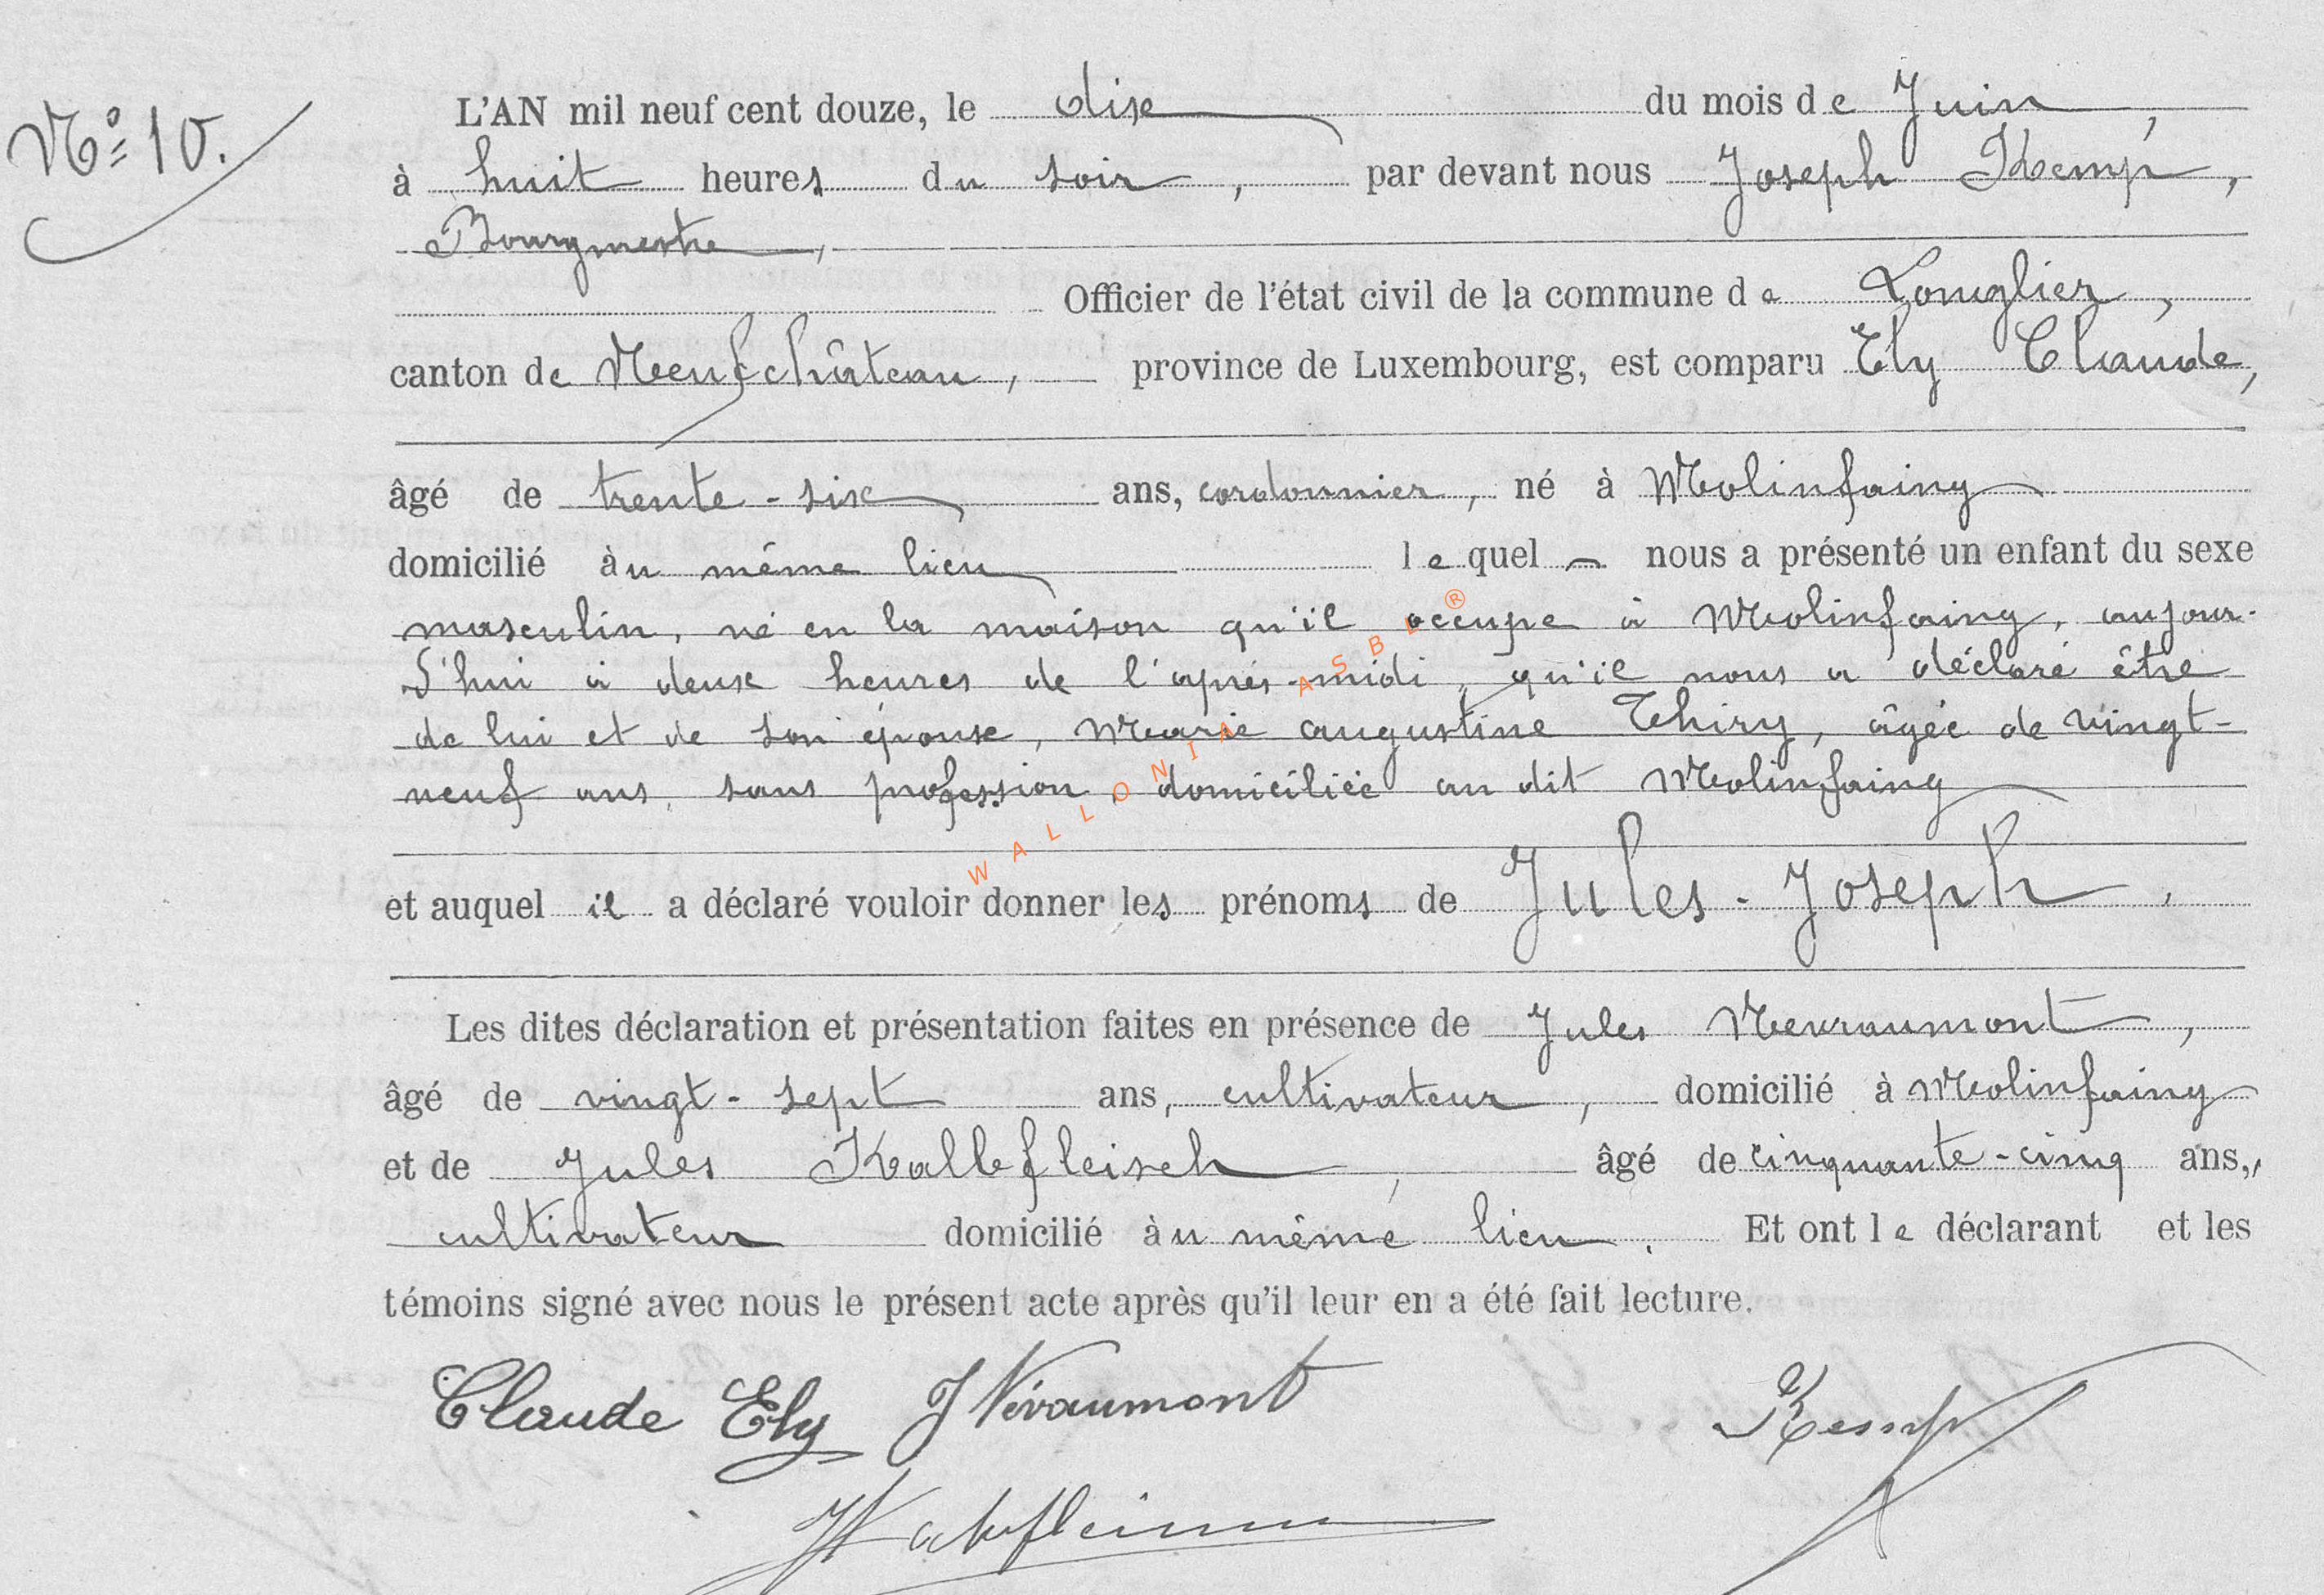 N° 10.
L'AN mil neuf cent douze, le dix du mois de Juin,
à huit heures du soir, par devant nous Joseph Kemp,
Bourgmestre,
Officier de l'état civil de la commune de Longlier,
canton de Neufchâteau, province de Luxembourg, est comparu Ely Claude,
âgé de trente-six ans, cordonnier, né à Molinfaing
domicilié àu même lieu lequel nous a présenté un enfant du sexe
masculin, né en la maison qu'il occupe à Molinfaing, aujour-
d'hui à deux heures de l'après-midi, qu'il nous a déclaré être
de lui et de son épouse, Marie Augustine Thiry, âgée de vingt-
neuf ans, sans profession, domiciliée au dit Molinfaing
et auquel il a déclaré vouloir donner les prénoms de Jules-Joseph,
Les dites déclaration et présentation faites en présence de Jules Nevraumont,
âgé de vingt-sept ans, cultivateur, domicilié à Molinfaing
et de Jules Kalbfleisch, âgé de cinquante-cinq ans,
cultivateur domicilié àu même lieu. Et ont le déclarant et les
témoins signé avec nous le présent acte après qu'il leur en a été fait lecture.
Claude Ely J Névraumont Kemp
WALLONIA ASBL ®